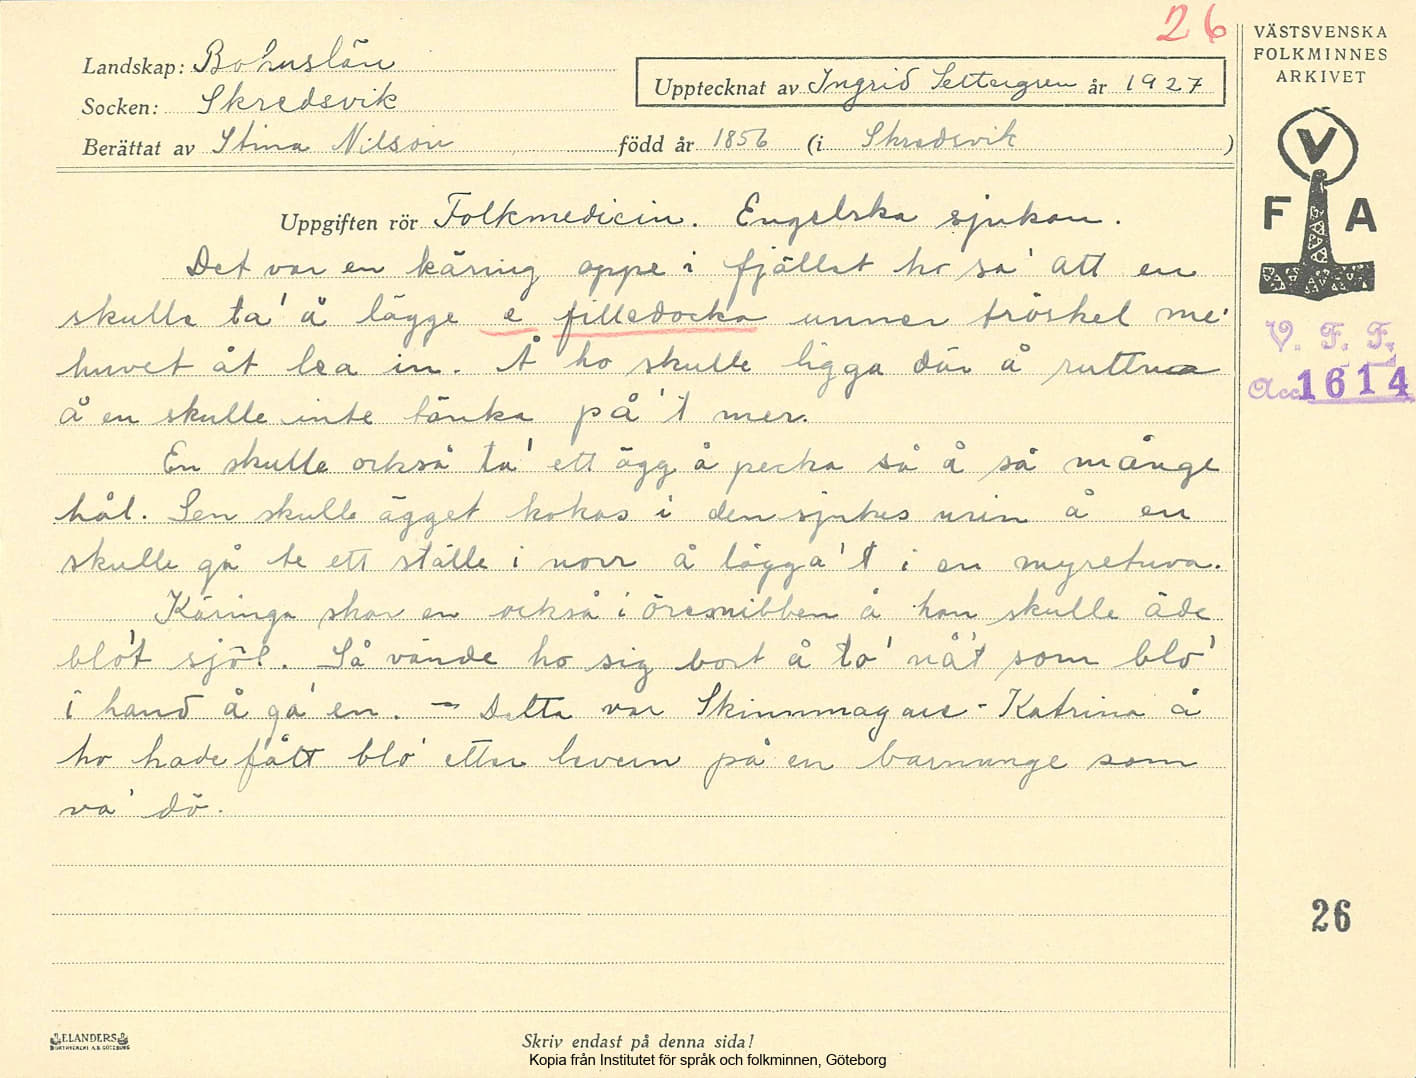 26
VÄSTSVENSKA
FOLKMINNES
ARKIVET
Landskap: Bohuslän
Upptecknat av Ingrid Settergren år 1927
Socken: Skredsvik
Berättat av Stina Nilson född år 1856 (i Skredsvik )
V
F A
Uppgiften rör Folkmedicin. Engelska sjukan.
Det var en käring oppe i fjället ho sa' att en
skulle ta' å lägge e filledocka unner tröskel me'
huvet åt lea in. Å ho skulle ligga där å ruttna
å en skulle inte tänka på't mer.
En skulle också ta' ett ägg å pecka så å så månge
hål. Sen skulle ägget kokas i den sjukes urin å en
skulle gå te ett ställe i norr å lägga't i en myretuva.
Käringa skar en också i öresnibben å han skulle äde
blo't sjöl. Så vände ho sig bort å to' nå't som blo'
i hand å ga' en. - Detta var Katrina å
ho hade fått blo' etter levern på en barnunge som
va' dö.
V. F. F.
Acc. 1614
26
ELANDERS
BOKTRYCKERI A.B. GÖTEBORG
Skriv endast på denna sida!
Kopia från Institutet för språk och folkminnen, Göteborg